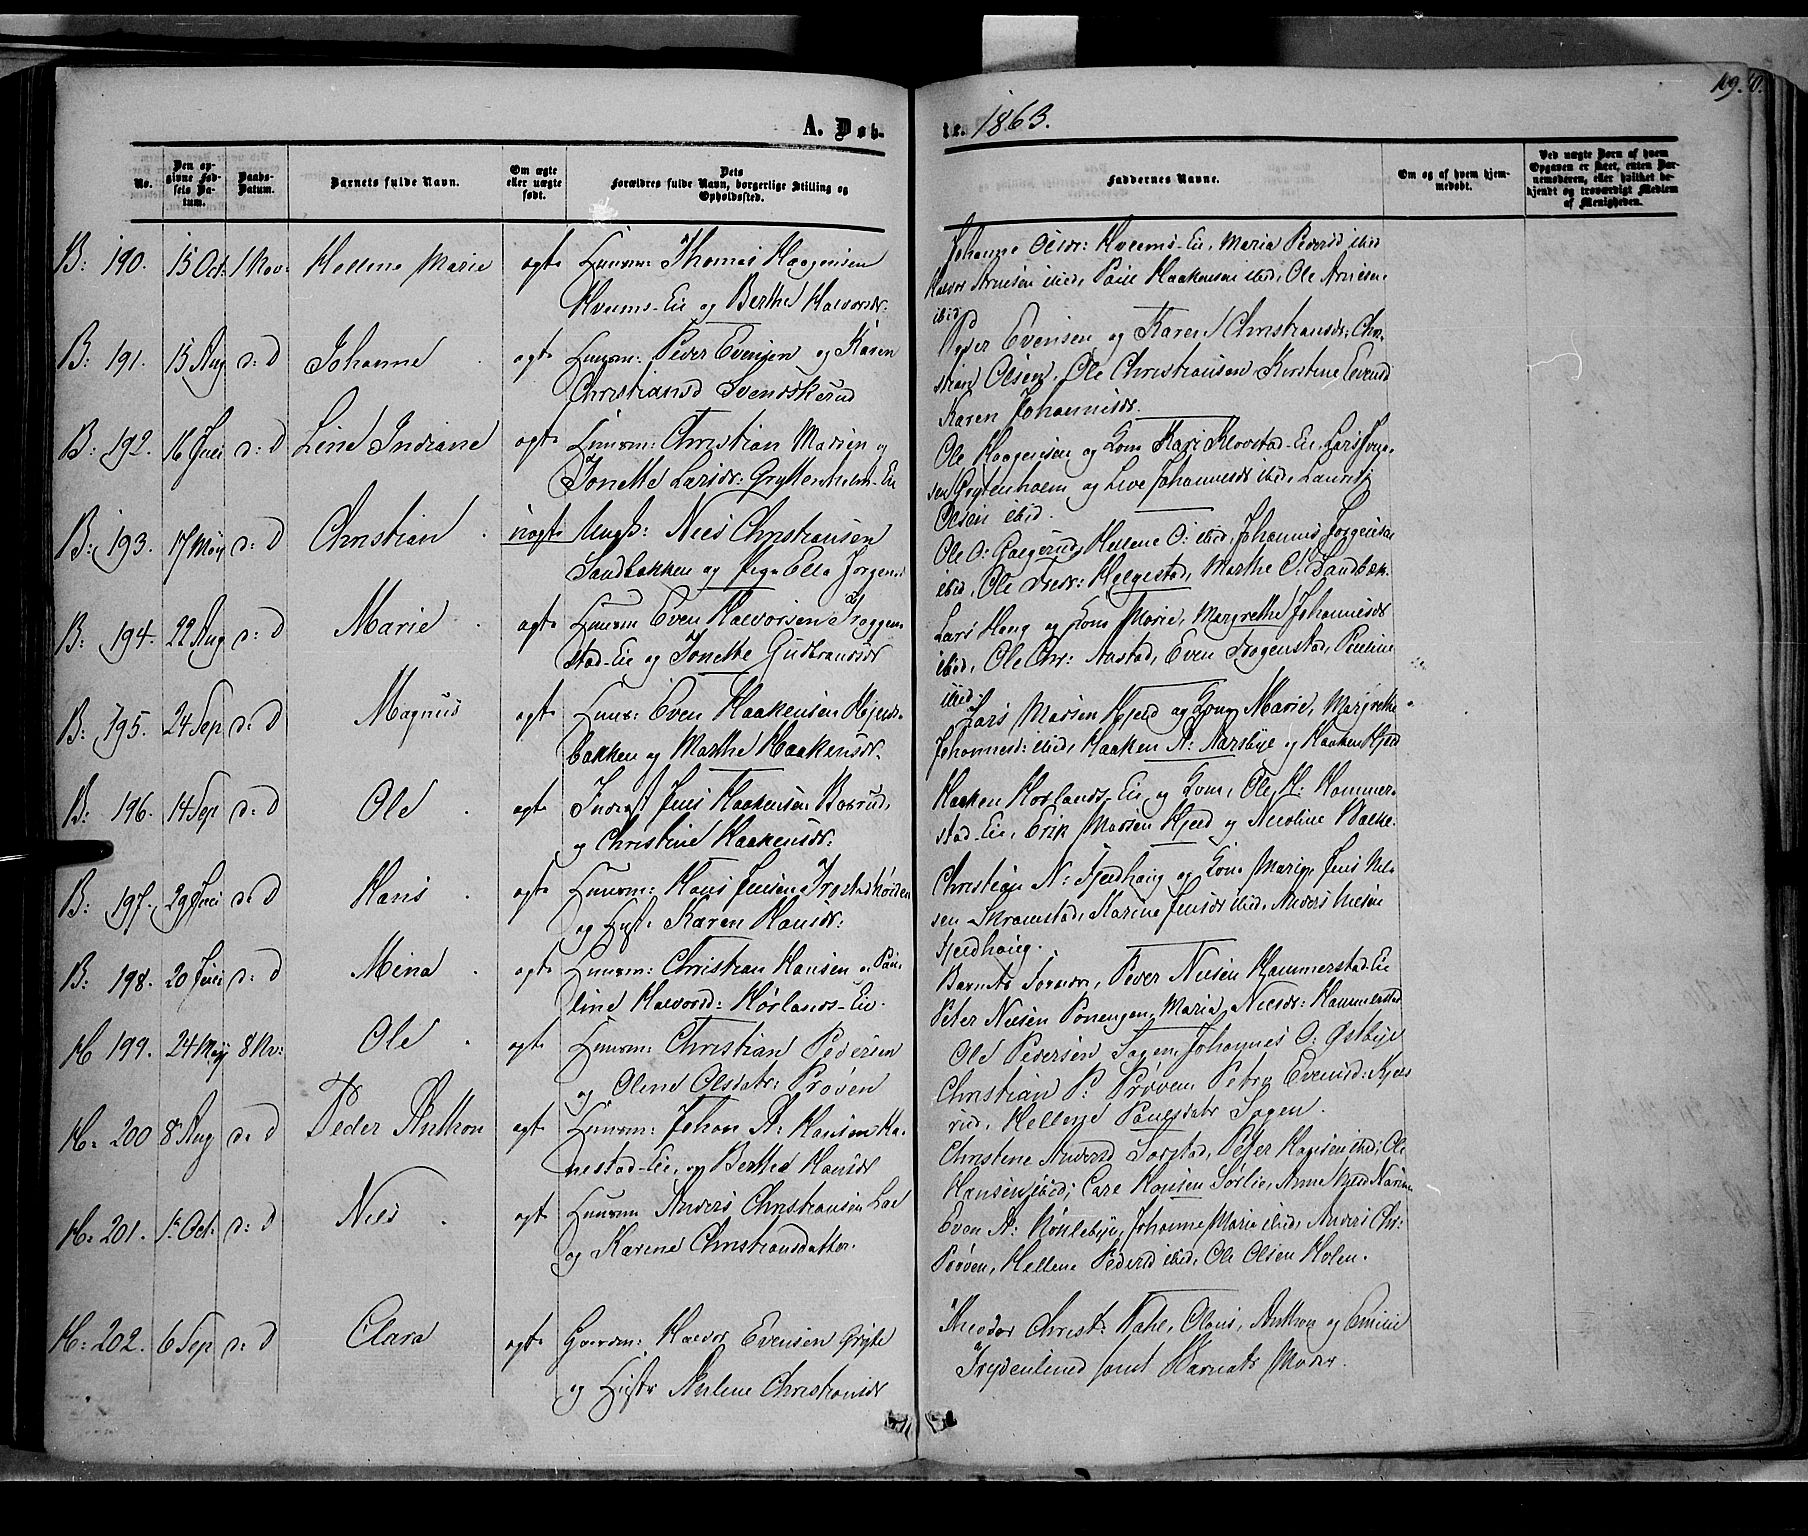 A. Døb-
te. 1863.
109.
No.
Den opgivne Fødsels Datum.
Daabs-Datum.
Barnets fulde Navn.
Om ægte eller uægte født.
Dets Forældres fulde Navn, borgerlige Stilling og Opholdssted.
Faddernes Navne.
Om og af hvem hjemmedøbt.
Ved uægte Børn af hvem Opgaven er skeet, enten Barnemoderen, eller hvilket bekjendt og troværdigt Medlem af Menigheden.
B: 190. 15 Oct. 1 Nov: Hellene Marie ægte Huusm: Thomas Haagensen
Kveems-Eie og Berthe Halvorsdr.
Johanne Olsdr: Kveems-Eie, Maria Pedersd ibid
Halvor Arnesen ibid, Paul Haakensen ibid, Ole Arnesen
ibid
B: 191. 15 Aug d: d Johanne ægte Huusm: Peder Evensen og Karen
Christiansd Svendskerud
Peder Evensen og Karen Christiansdr, Chri-
stian Olsen, Ole Christiansen Kirstine Evensd
Karen Johannesdr.
B: 192. 16 Juli d: d Line Indiane ægte Huusm: Christian Madsen og
Jonette Larsdr: Gryttenholm-Eie
Ole Haagensen og Kone Kari Klovstad-Eie, Lars
sen Grytenholm og Live Johannesdr ibid, Lauritz
Olsen ibid.
B: 193. 17 May d: d Christian uægte Ungk: Niels Christiansen
Sandbakken og Pige Ella Jørgensd
Ole O: Hellene O: ibid, Johannes Jørgensen
ibid, Ole Helgestad, Marthe O: Sandbæk.
B: 194. 22 Aug d: d Marie ægte Huusm Even Halvorsen
stad-Eie og Jonette Gudbrandsdr
Lars Haug og Kone Marie, Margrethe Johannesdr
ibid, Ole Chr: Aastad, Even Pauline
ibid.
B: 195. 24 Sep d: d Magnus ægte Huusm: Even Haakensen
bakken og Marthe Haakensdr.
Lars Madsen Hjeld og Kone Marie, Margrethe
Johannesd: ibid, Haaken A: Aarsbye og Haaken Hjeld
B: 196. 14 Sep d: d Ole ægte Inderst Jens Haakensen Borrud,
og Christine Haakensdr:
Haaken Hørlands-Eie og Kone, Ole H: Hammer-
stad-Eie, Erik Madsen Hjeld og Nicoline Balke.
B: 197. 29 Juli d: d Hans ægte Huusm: Hans Jensen
og Hust: Karen Hansdr:
Christian N: Fjeldhaug og Kone Marie, Jens Niel-
sen Skramstad, Karine Jensdr ibid, Anders Nielsen
Fjeldhaug.
B: 198. 20 Juli d: d Mina ægte Huusm: Christian Hansen og Pau-
line Halvorsd: Hørlands-Eie.
Barnets Forældre, Peder Nielsen Hammerstad-Eie
Peter Nielsen Maria Nielsdr: Hammerstad
H 199. 24 May 8 Nv: Ole ægte Huusm: Christian Pedersen
og Oline Olsdatr: Prøven
Ole Pedersen Sagen, Johannes O: Østbye
Christian P: Prøven, Petra Evensd:
rud, Hellene Paulsdatr Sagen.
H: 200 8 Aug d: d Peder Anthon ægte Huusm: Johan A: Hansen Ha-
nestad-Eie, og Berthea Hansdr
Christene Andersd Peter Hansen ibid, Ole
Hansen ibid, Carl Hansen Sørlie, Anne
H: 201. 1 Oct. d: d Niels ægte Huusm Anders Christiansen
og Karine Christiansdatter.
Even A: Johanne Maria ibid, Anders Chr:
Prøven, Hellene Pedersd ibid, Ole Olsen Holen.
H: 202. 6 Sep d: d Clara ægte Gaardm: Halvor Evensen
og Hustr Christiansdr
Theodor Christ: Dahl, Olaus, Anthon og Emilie
Frydenlund samt Barnets Moder.